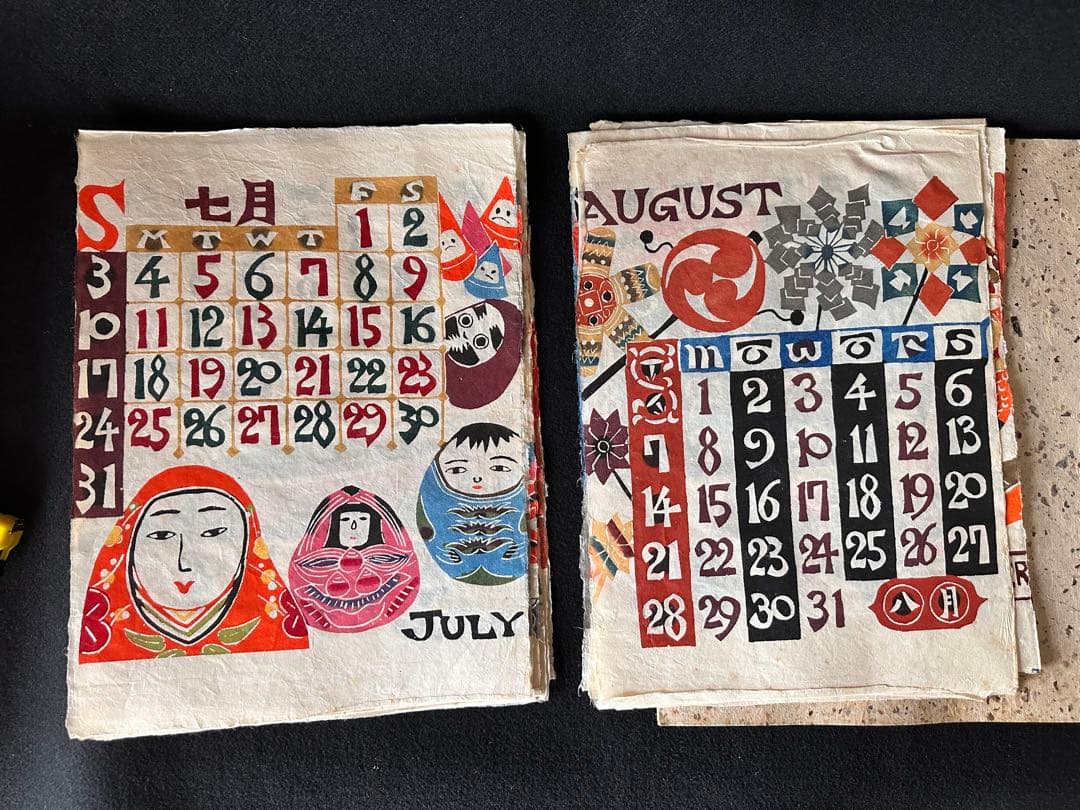 七月
S M T W T F S
1 2
3 4 5 6 7 8 9
10 11 12 13 14 15 16
17 18 19 20 21 22 23
24 25 26 27 28 29 30
31
JULY
AUGUST
S M T W T F S
1 2 3 4 5 6
7 8 9 10 11 12 13
14 15 16 17 18 19 20
21 22 23 24 25 26 27
28 29 30 31
八月
R